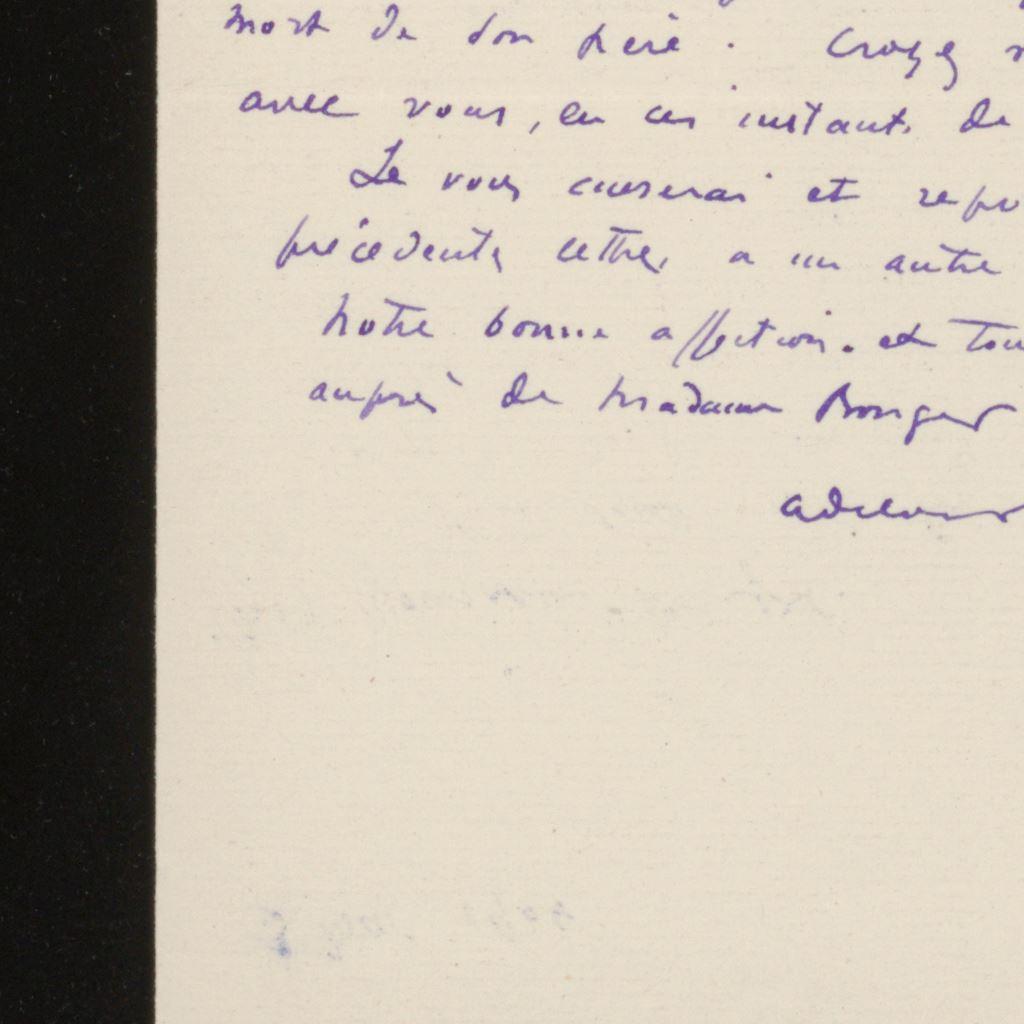 mort de son père. Croyez
avec vous, en ces instants de
Je vous causerai et
précédente lettre, a un autre
Notre bonne affection. et
auprès de Madame Bonger